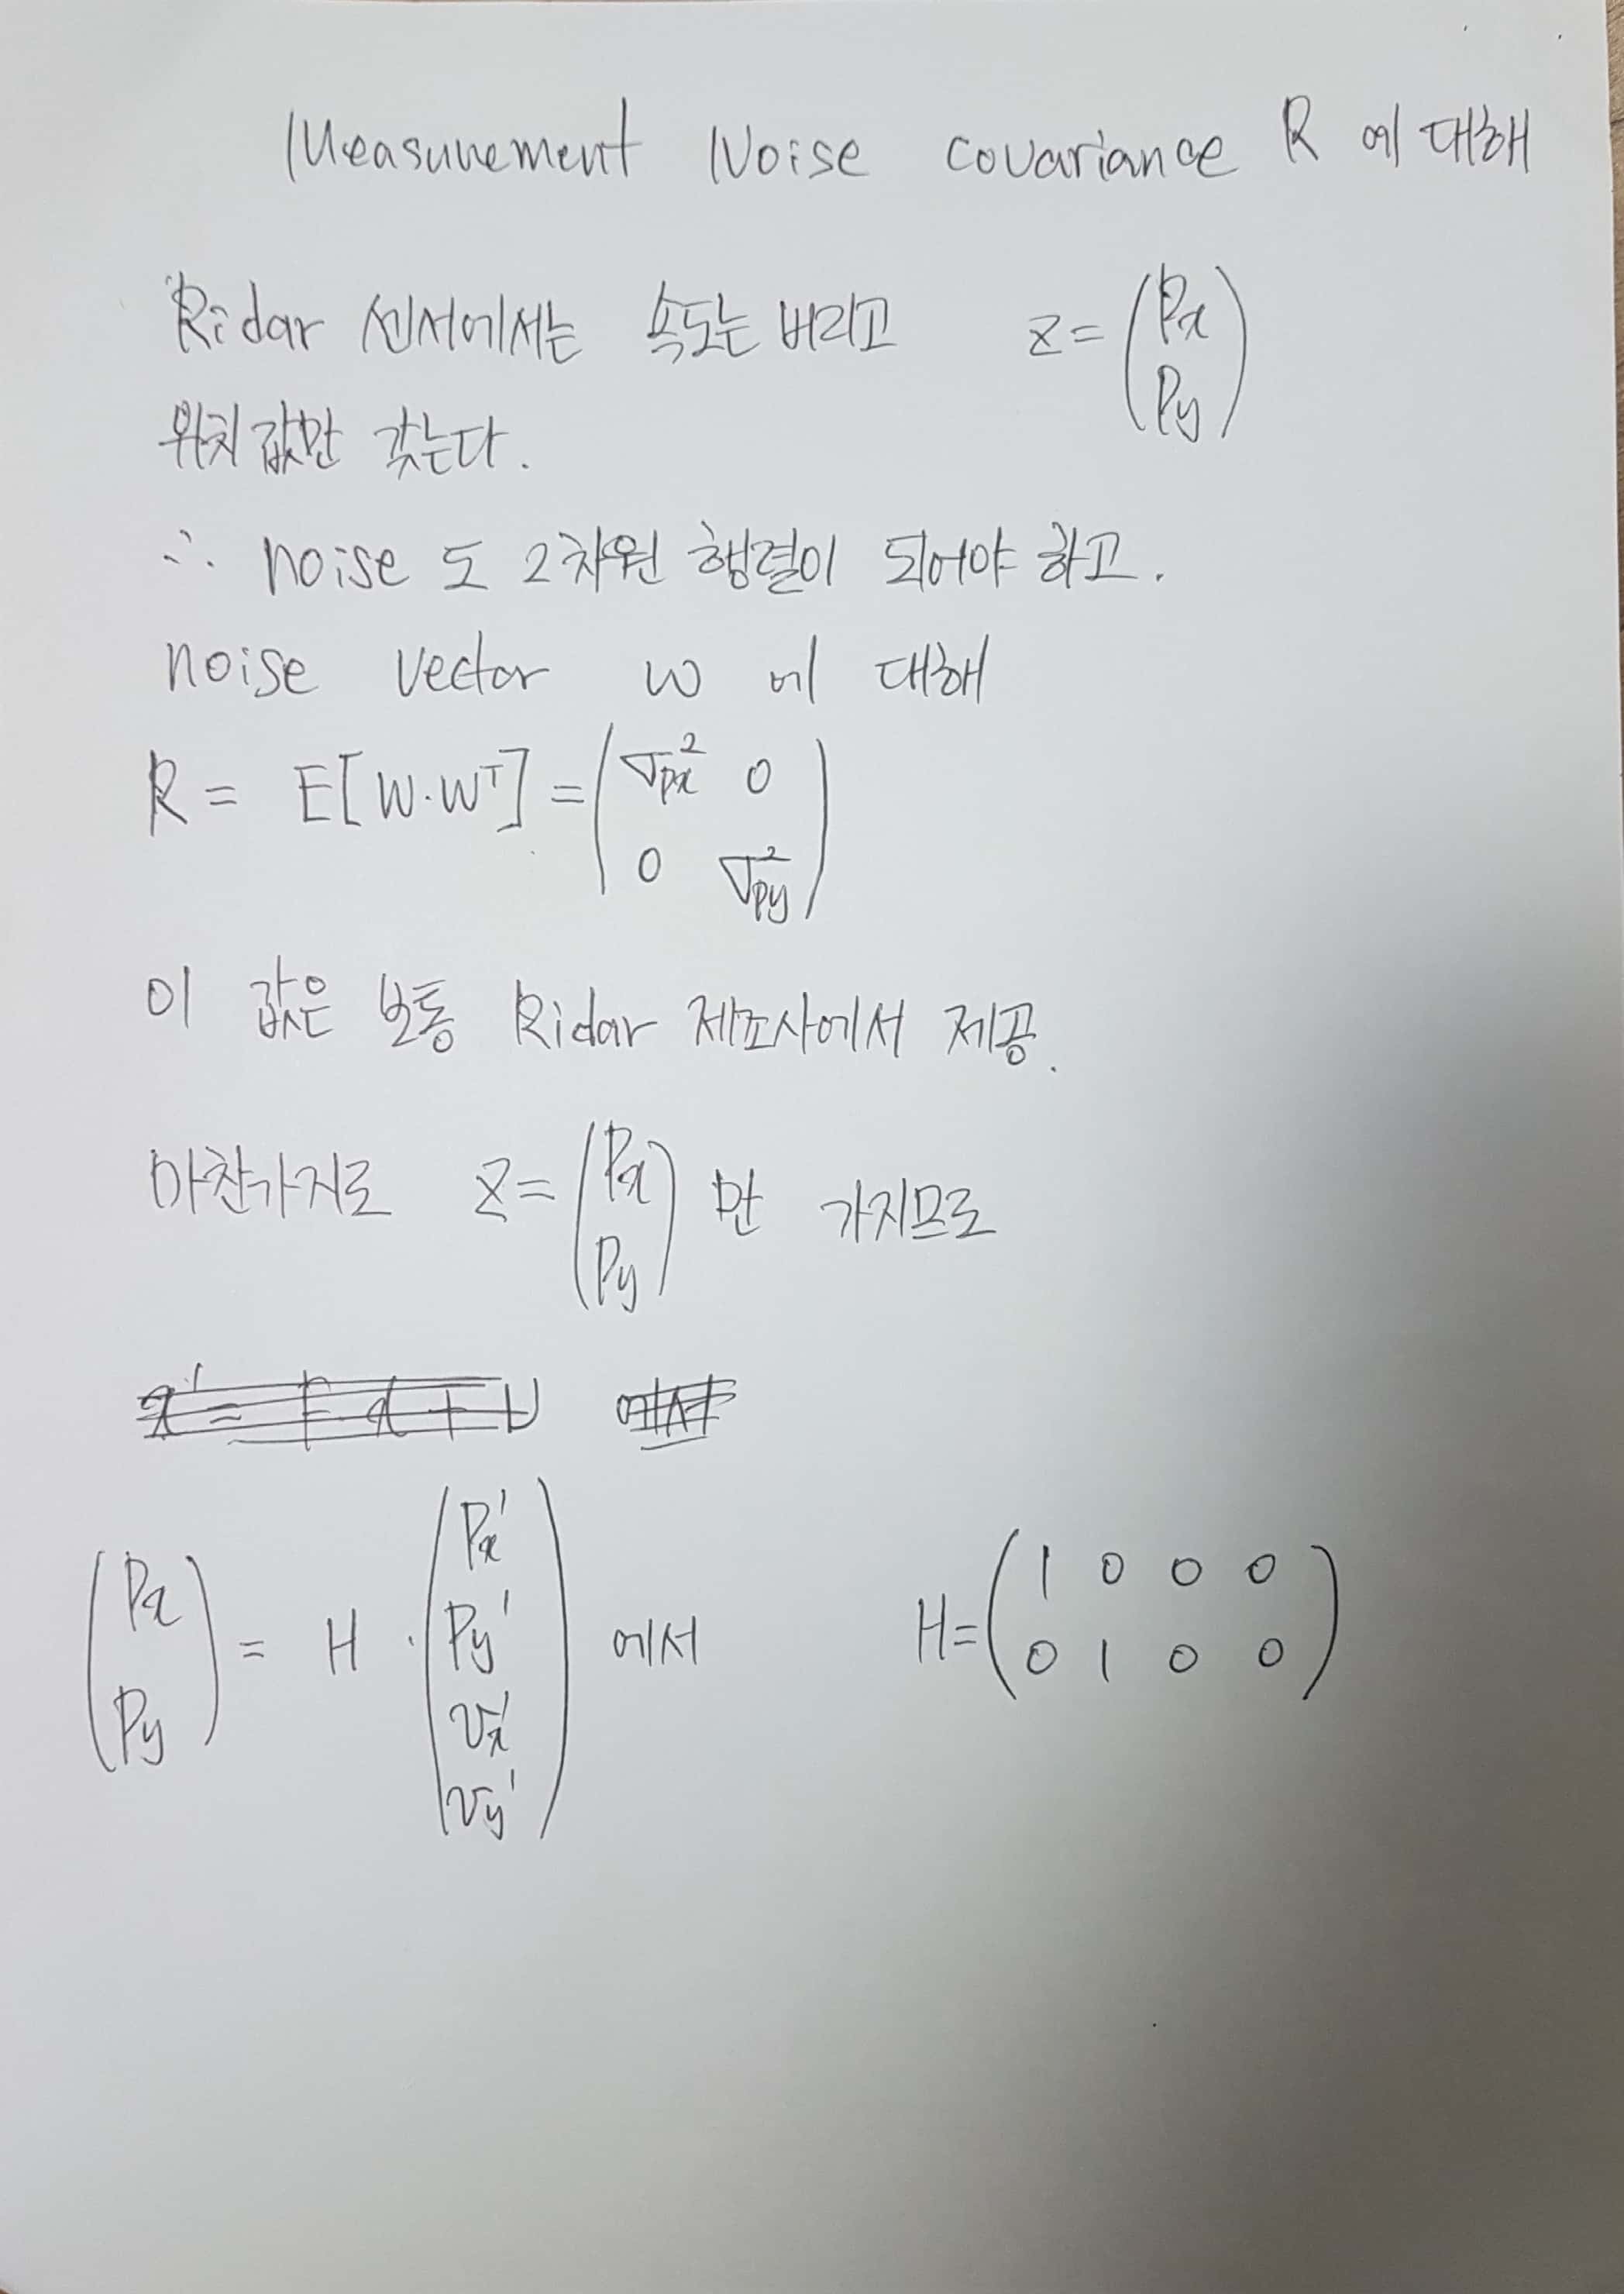 Measurement Noise covariance R 에 대해
Ridar 센서에서는 속도는 버리고 z = (Px Py)
위치값만 갖는다.
∴ noise 도 2차원 행렬이 되어야 하고.
noise vector w 에 대해
R = E[w·wᵀ] = (σ²px 0 0 σ²py)
이 값은 보통 Ridar 제조사에서 제공.
마찬가지로 z = (Px Py) 만 가지므로
(Px Py) = H · (Px' Py' vx' vy') 에서 H = (1 0 0 0 0 1 0 0)